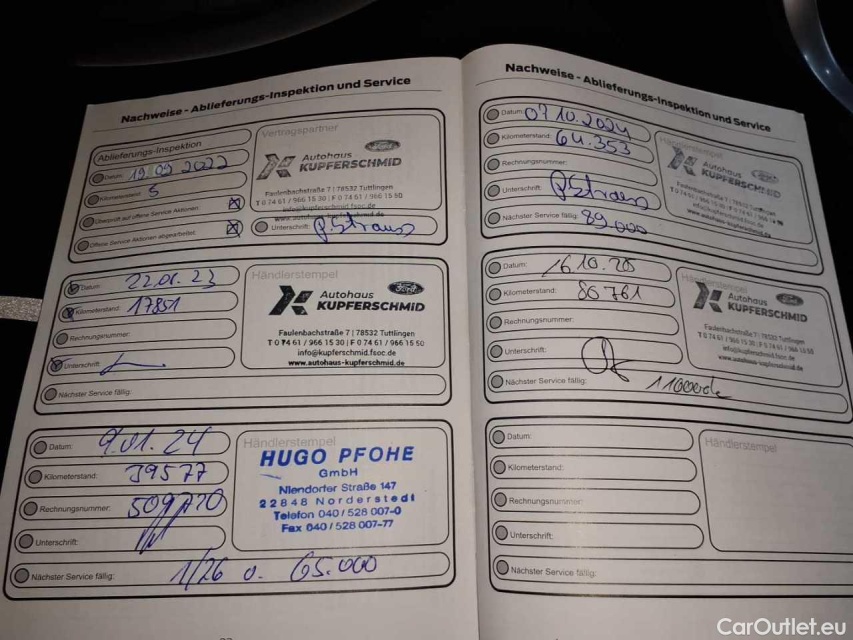 Nachweise - Ablieferungs-Inspektion und Service
Ablieferungs-Inspektion
Datum: 19 09 2022
Kilometerstand: 5
Überprüft auf offene Service Aktionen:
Offene Service Aktionen abgearbeitet:
Vertragspartner
Ford
Autohaus
KUPFERSCHMID
Faulenbachstraße 7 | 78532 Tuttlingen
T 0 74 61 / 966 15 30 | F 0 74 61 / 966 15 50
info@kupferschmid.fsoc.de
www.autohaus-kupferschmid.de
Unterschrift:
Datum: 22.01.23
Kilometerstand: 17851
Rechnungsnummer:
Unterschrift:
Nächster Service fällig:
Händlerstempel
Ford
Autohaus
KUPFERSCHMID
Faulenbachstraße 7 | 78532 Tuttlingen
T 0 74 61 / 966 15 30 | F 0 74 61 / 966 15 50
info@kupferschmid.fsoc.de
www.autohaus-kupferschmid.de
Datum: 9.01.24
Kilometerstand: 39577
Rechnungsnummer:
Unterschrift:
Nächster Service fällig: 1/26 o. 65.000
Händlerstempel
HUGO PFOHE
GmbH
Niendorfer Straße 147
22848 Norderstedt
Telefon 040/528 007-0
Fax 040/528 007-77
Nachweise - Ablieferungs-Inspektion und Service
Datum: 07.10.2024
Kilometerstand: 64.353
Rechnungsnummer:
Unterschrift:
Nächster Service fällig: 89.000
Händlerstempel
Autohaus
KUPFERSCHMID
Faulenbachstraße 7 | 78532 Tuttlingen
T 0 74 61 / 966 15 30 | F 0 74 61 / 966
info@kupferschmid.fsoc.de
www.autohaus-kupferschmid.de
Datum: 16.10.25
Kilometerstand: 86761
Rechnungsnummer:
Unterschrift:
Nächster Service fällig:
Händlerstempel
Autohaus
KUPFERSCHMID
Faulenbachstraße 7 | 78532 Tuttlingen
T 0 74 61 / 966 15 30 | F 0 74 61 / 966 15 50
info@kupferschmid.fsoc.de
www.autohaus-kupferschmid.de
Datum:
Kilometerstand:
Rechnungsnummer:
Unterschrift:
Nächster Service fällig:
Händlerstempel
CarOutlet.eu